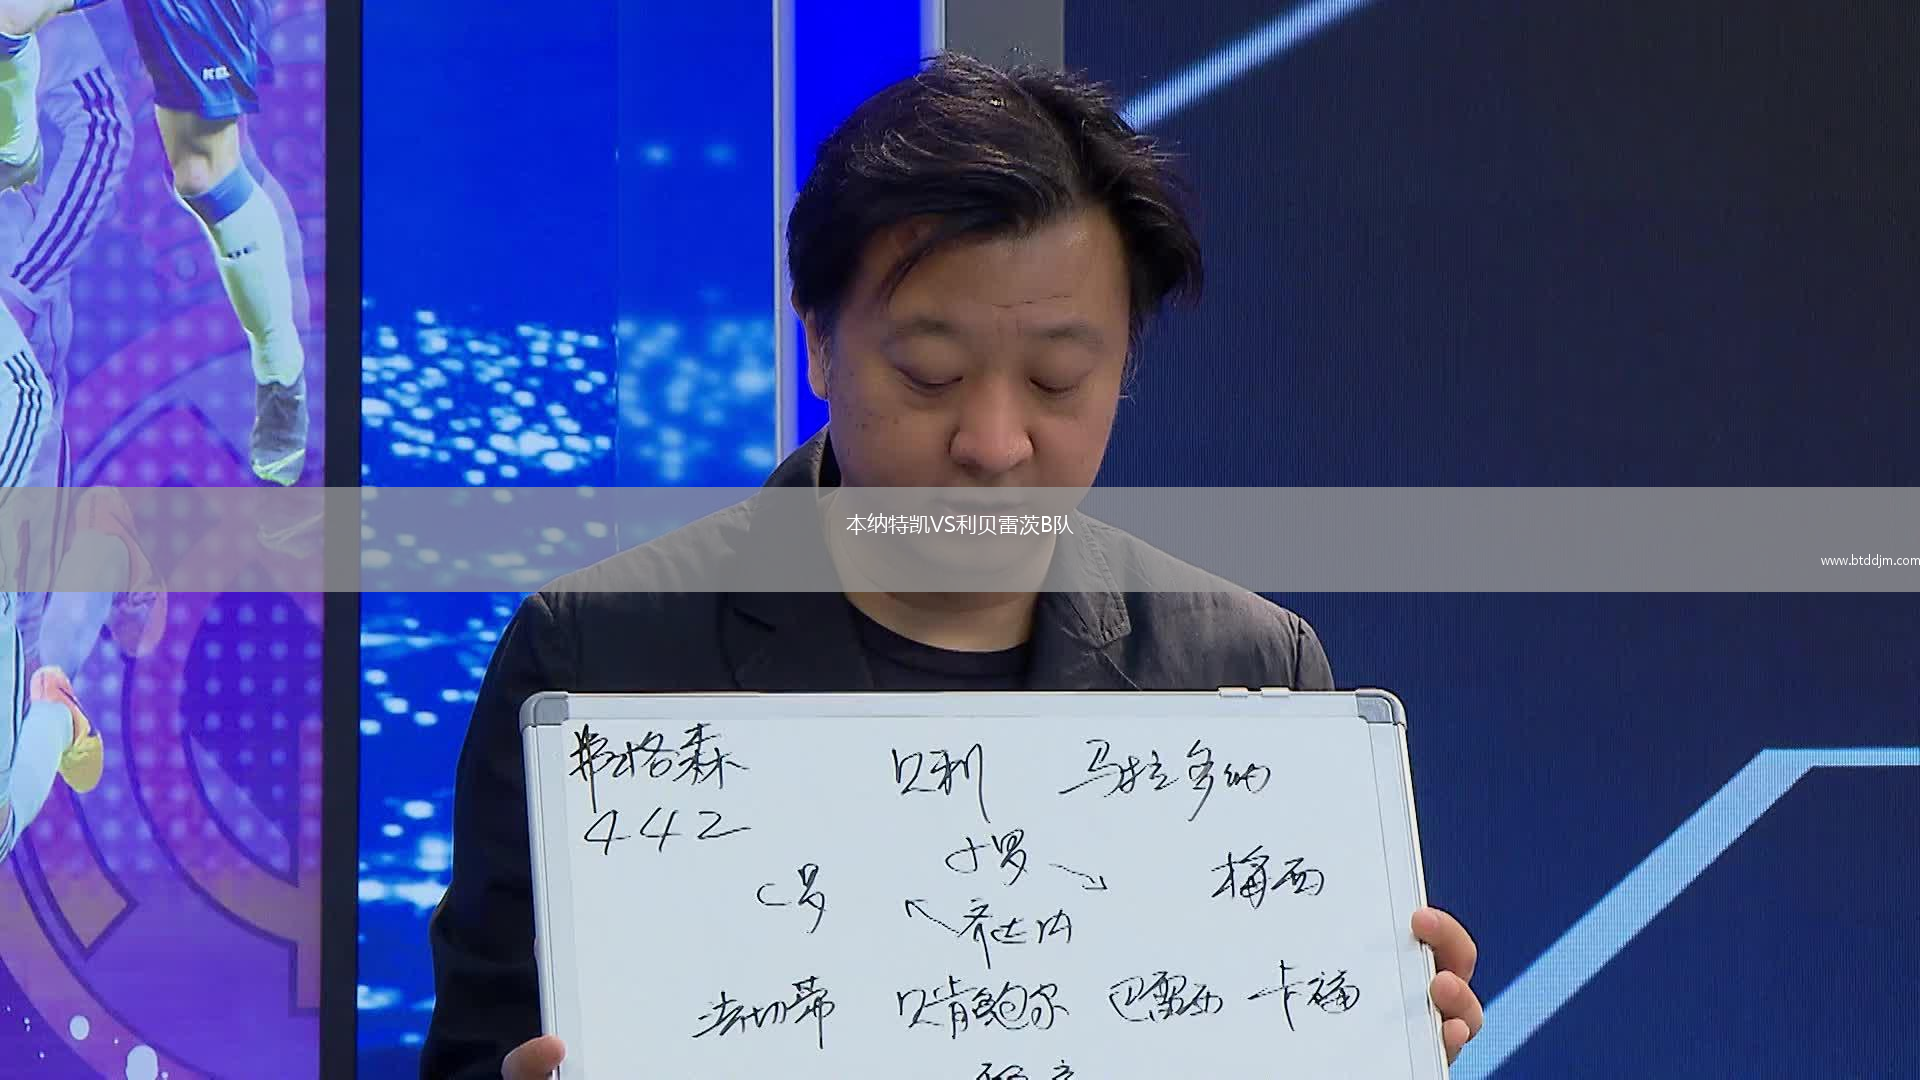 KEL
本纳特凯VS利贝雷茨B队
www.btddjm.com
弗格森 贝利 马拉多纳
442
小罗
C罗 梅西
齐达内
法切蒂 贝肯鲍尔 巴雷西 卡福